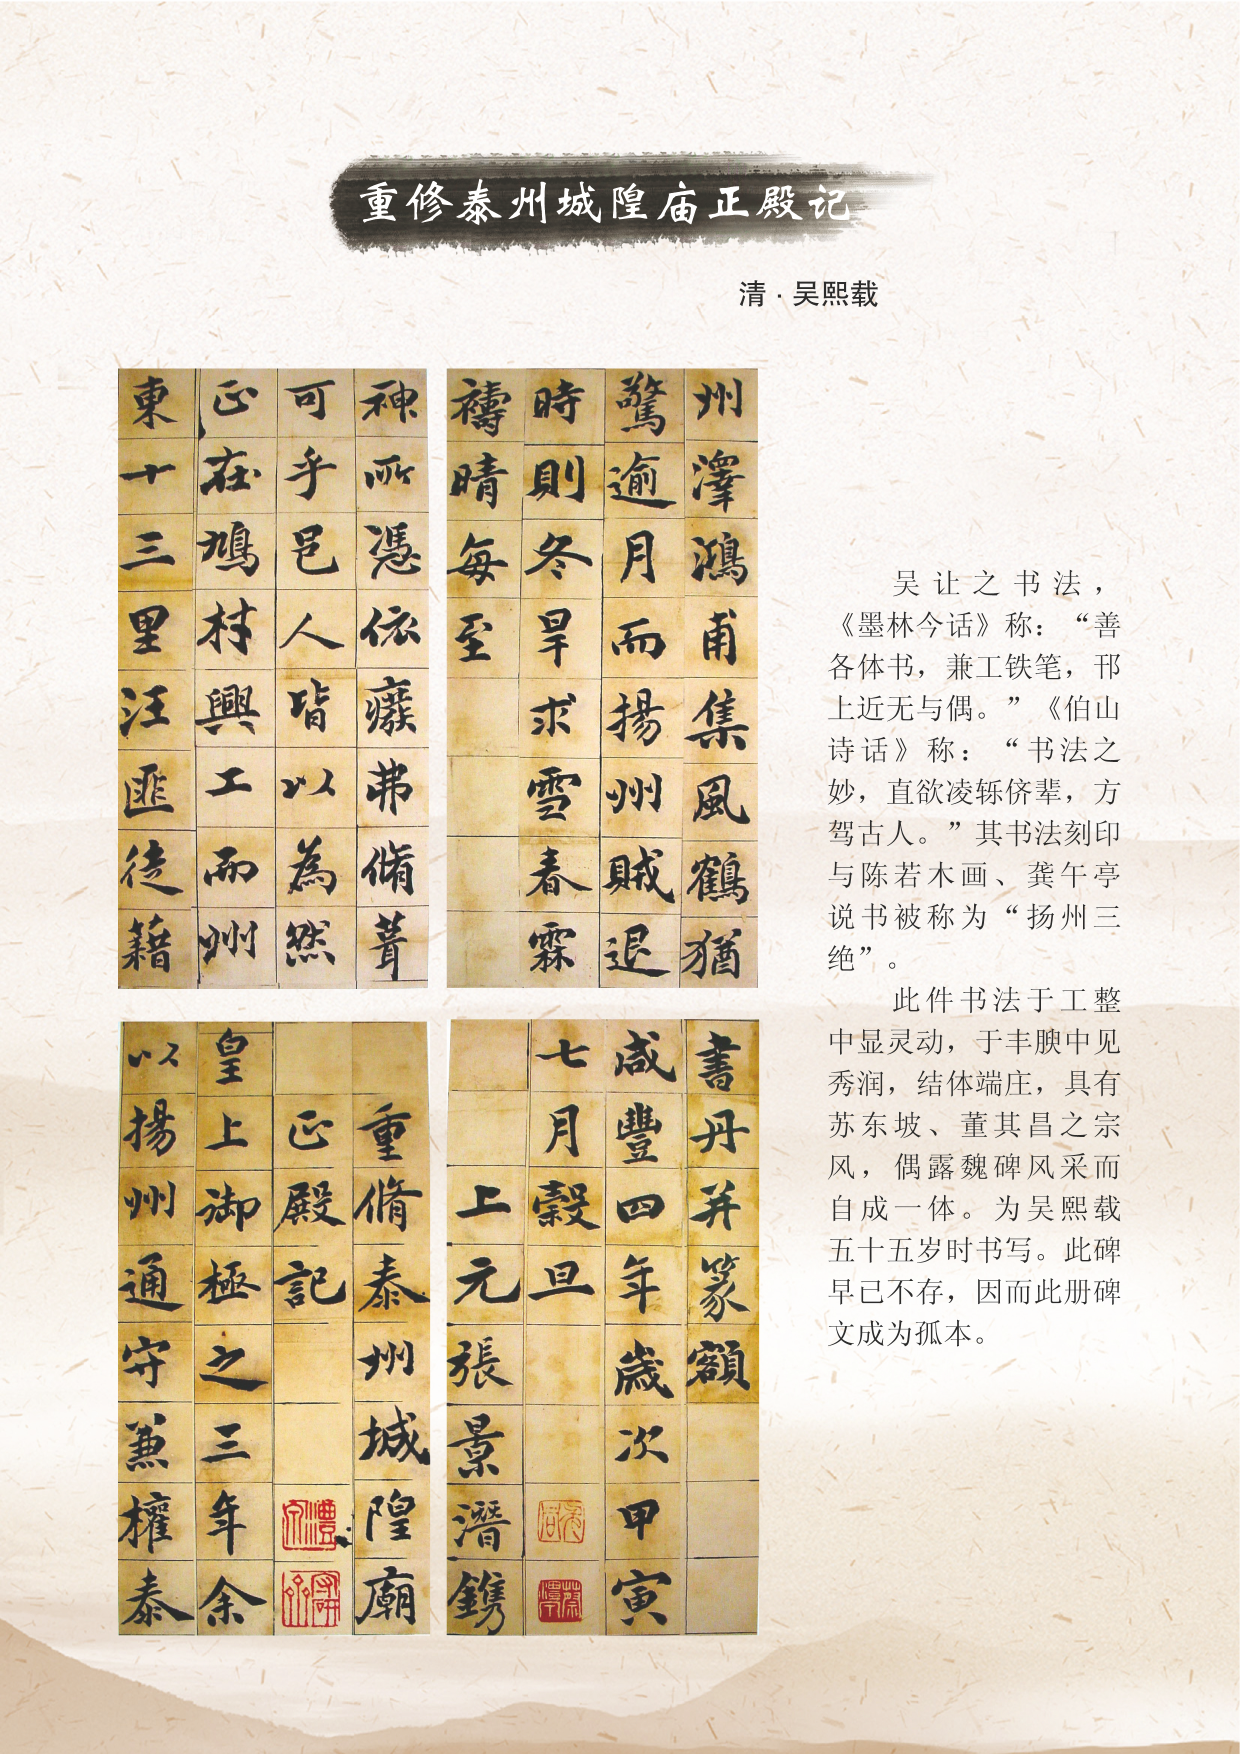 重修泰州城隍庙正殿记
清·吴熙载
州澤鴻甫集風鶴猶
驚逾月而揚州賊退
時則冬旱求雪春霖
禱晴每至
神所憑依癈弗脩葺
可乎邑人皆以為然
正在鳩材興工而州
東十三里汪匪徒藉
書丹并篆額
咸豐四年歲次甲寅
七月穀旦
上元張景潛鐫
重脩泰州城隍廟
正殿記
皇上御極之三年余
以揚州通守兼權泰
吴让之书法，
《墨林今话》称：“善
各体书，兼工铁笔，邗
上近无与偶。”《伯山
诗话》称：“书法之
妙，直欲凌轹侪辈，方
驾古人。”其书法刻印
与陈若木画、龚午亭
说书被称为“扬州三
绝”。
此件书法于工整
中显灵动，于丰腴中见
秀润，结体端庄，具有
苏东坡、董其昌之宗
风，偶露魏碑风采而
自成一体。为吴熙载
五十五岁时书写。此碑
早已不存，因而此册碑
文成为孤本。